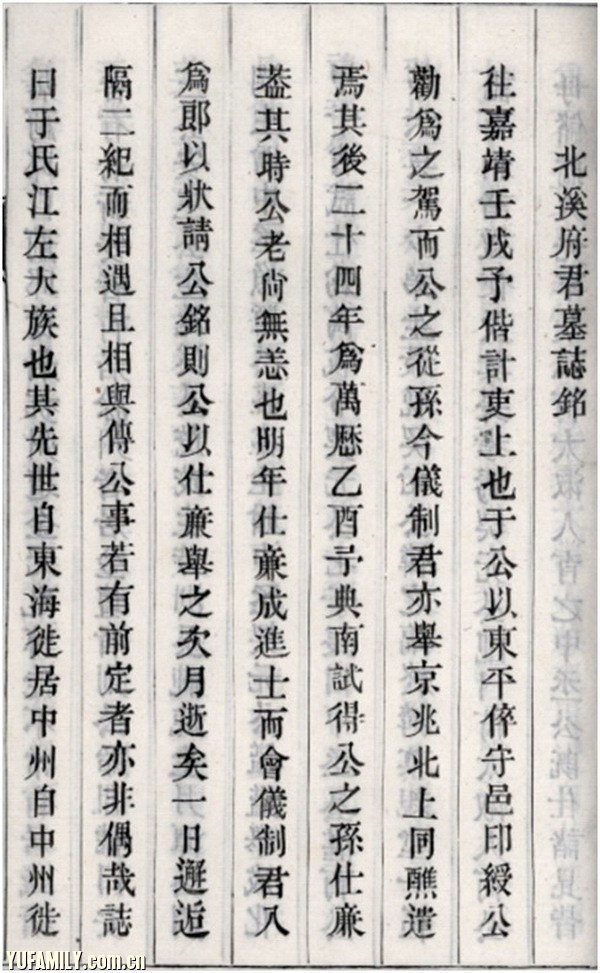 北溪府君墓誌銘
往嘉靖壬戌予偕計吏上也于公以東平倅守邑印綬公
勸爲之駕而公之從孫今儀制君亦舉京兆北上同醮遣
焉其後二十四年爲萬歷乙酉予典南試得公之孫仕廉
葢其時公老尙無恙也明年仕廉成進士而會儀制君入
爲郎以狀請公銘則公以仕廉舉之次月逝矣一日邂逅
隔二紀而相遇且相與傳公事若有前定者亦非偶哉誌
曰于氏江左大族也其先世自東海徙居中州自中州徙
YUFAMILY.com.cn